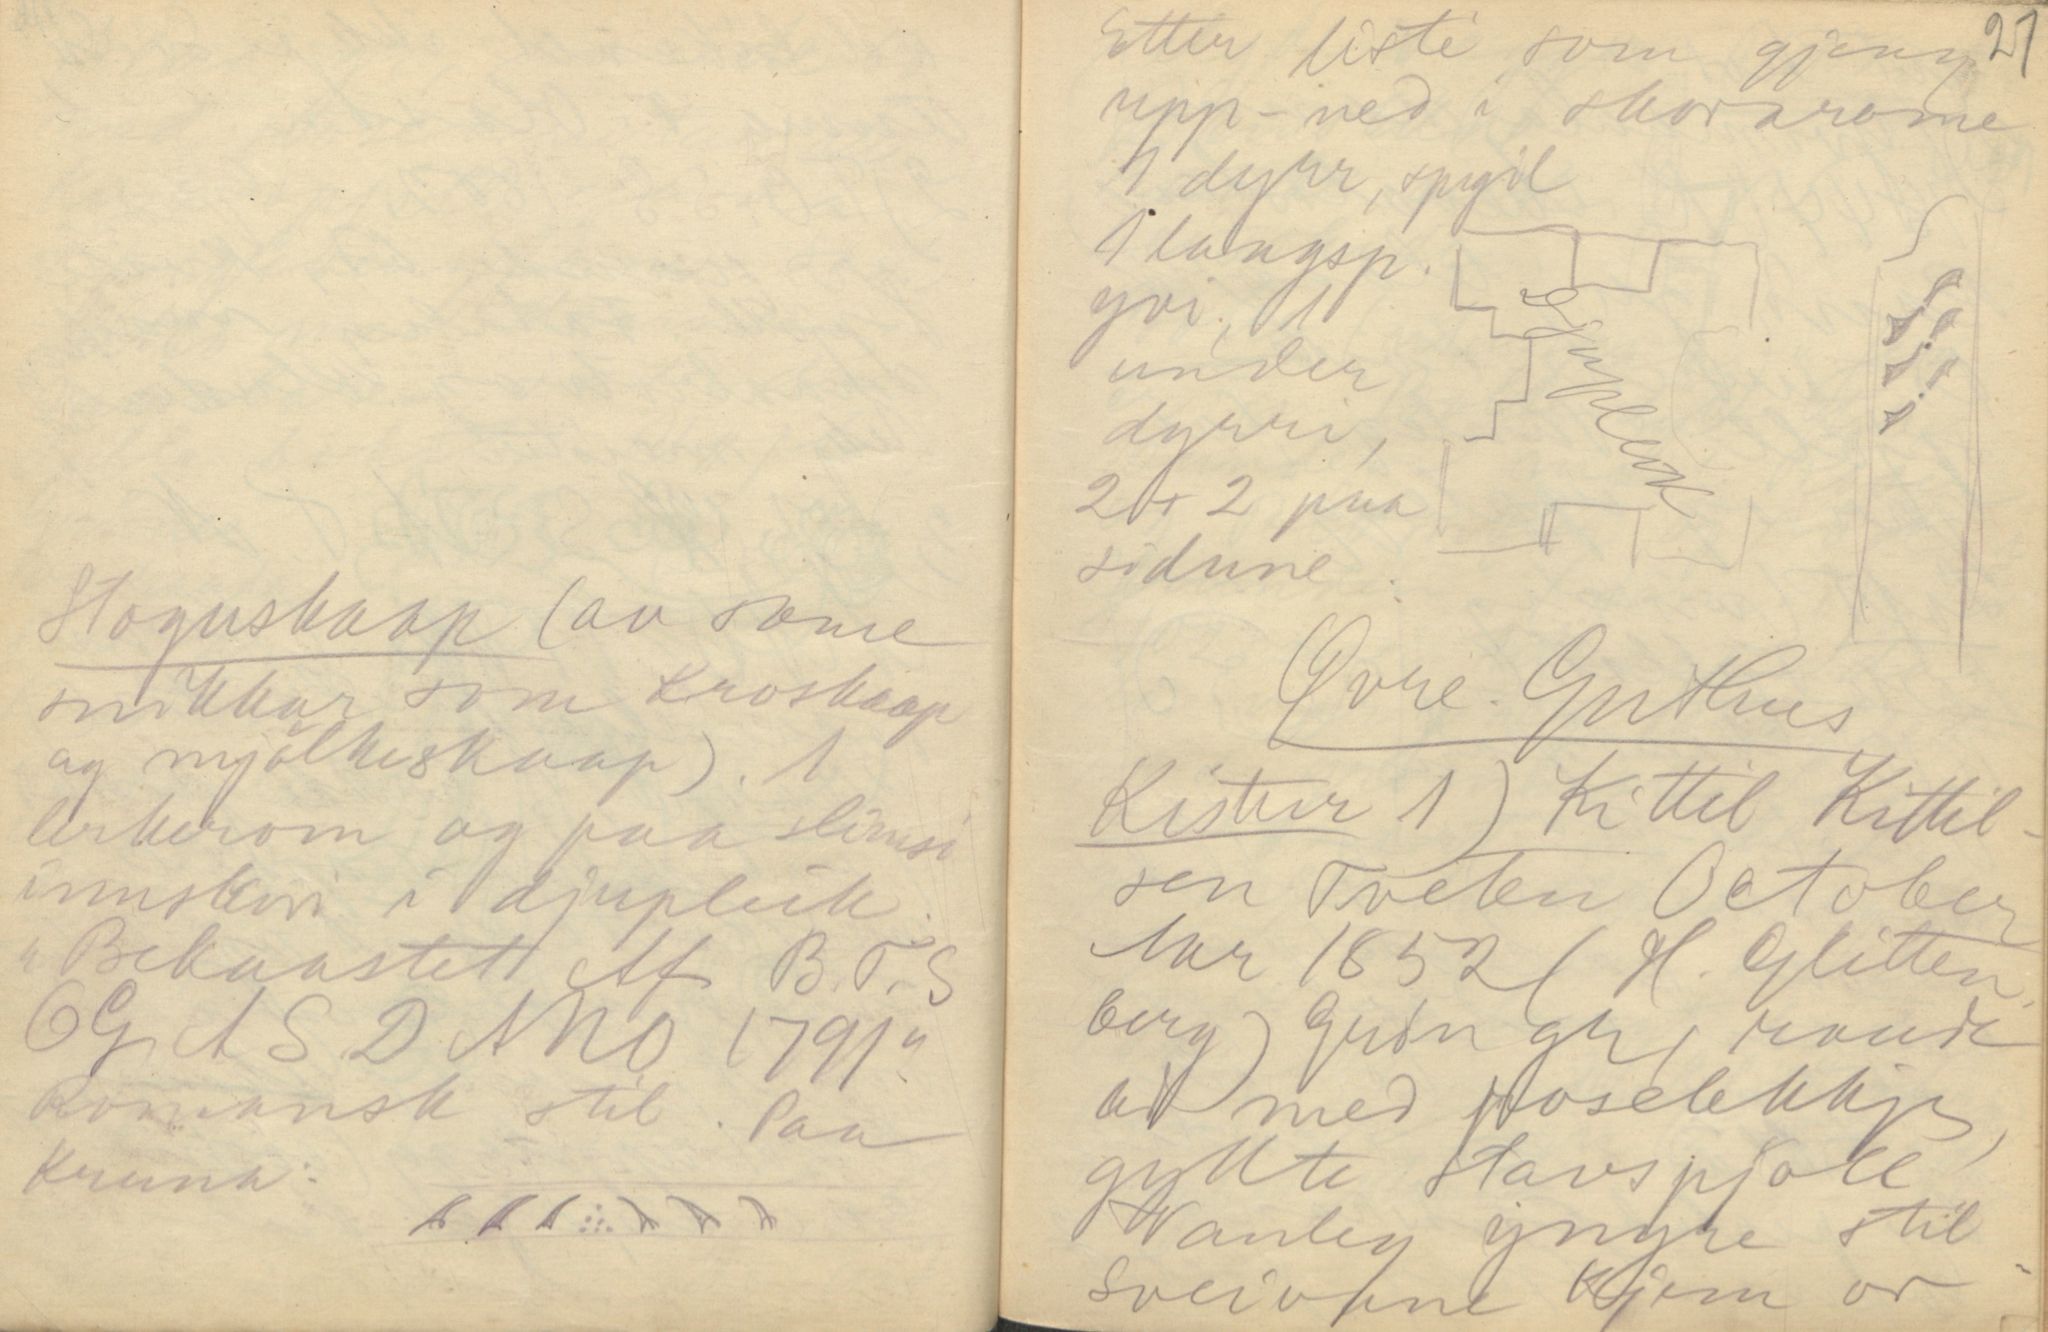 Stoguskaap (av same
snikkar som Kroskaap
og mjølkeskaap). 1
lerkerom og paa slimsi
innskori i djupleik.
"Bekaastett Af B.T.S
OG A S D ANNO 1791"
Romansk stil. Paa
Kruna:
21
Etter liste som gjeng
upp-ned i skorarome
1 dyrr, spgil
1 langsp.
yvi, 1
under
dyrri,
2 + 2 paa
sidune.
Djupleik
Øvre Guthus
Kistur 1) Kittil Kittil-
sen Tveten October
Aar 1852 (H. Glitten
berg) Grøn gr, raude
 med roselekkjer,
gyllte stavspjøll
Vanleg yngre stil
Sveivane kjem or